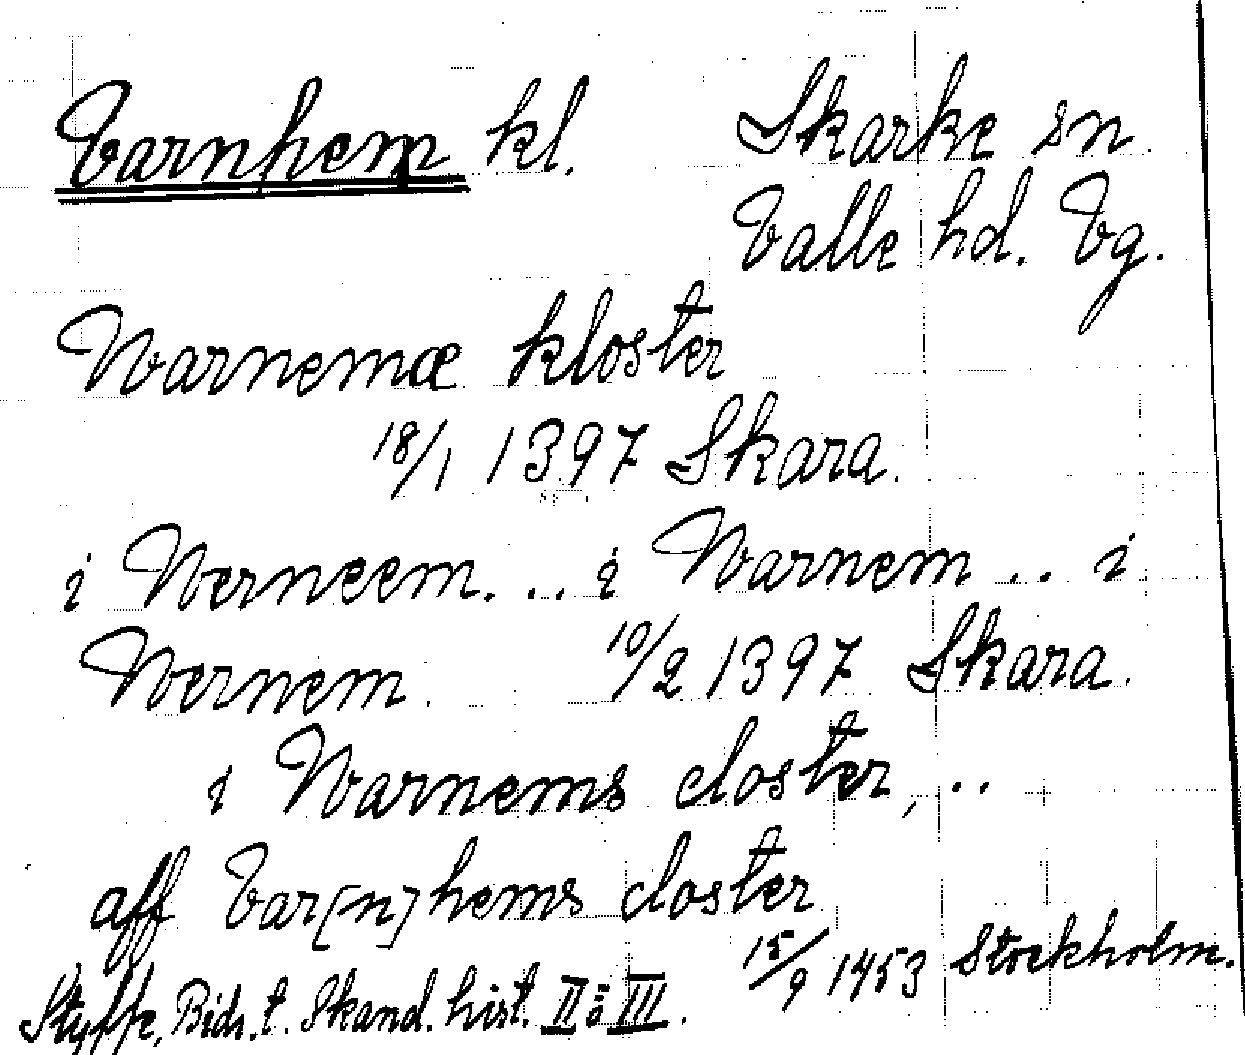 Varnhem kl. Skarke sn
Valle hd. Vg.
Warnemæ kloster
18/1 1397 Skara.
i Werneem... i Warnem .. i
Wernem 10/2 1397 Skara.
i Warnems closter, ..
aff Var[n]hems closter
15/9 1453 Stockholm.
Styffe, Bidr. t. Skand. hist. II o III.